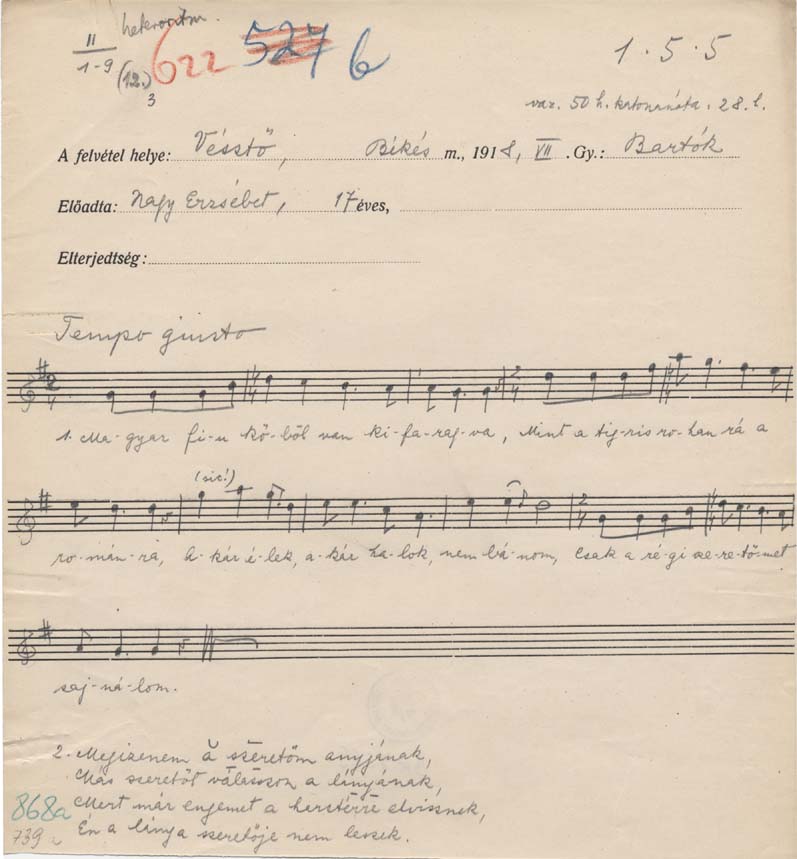 heteroritm.
II
1-9
(12.)
3
622 527 b
1 . 5 . 5
var. 50 h. katonanóta. 28. l.
A felvétel helye: Vésztő, Békés m., 1918, VII . Gy.: Bartók
Előadta: Nagy Erzsébet, 17 éves,
Elterjedtség:
Tempo giusto
2/4 2/4
1. Ma-gyar fi-u kő-ből van ki-fa-rag-va, Mint a tig-ris ro-han rá a
(sic!) 2/4
ro-mán-ra, A-kár é-lek, a-kár ha-lok, nem bá-nom, Csak a ré-gi sze-re-tő-met
saj-ná-lom.
2. Megizenem a szeretőm anyjának,
Más szeretőt válasszon a lányának,
Mert már engemet a harctérre elvisznek,
Én a lánya szeretője nem leszek.
868a
739a